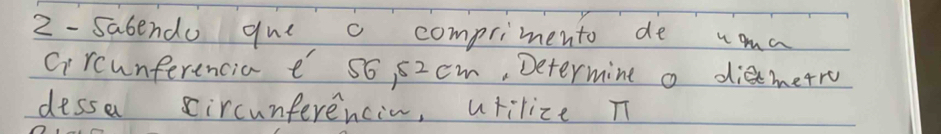 2 - Sabendo que o comprimento de uma
circunferencia é 56,52 cm. Determine o diametro
dessa circunferência, utilize π